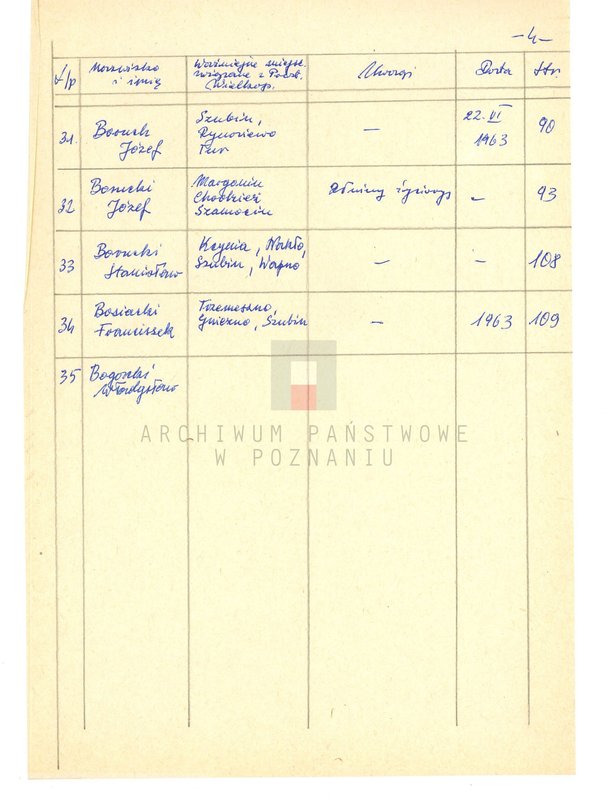 -4-
L/p
Nazwisko
i imię
Ważniejsze miejsc.
związane z Powst.
Wielkop.
Uwagi
Data
Str.
31.
Boruch
Józef
Szubin,
Rynarzewo
Tur
—
22. VI
1963
90
32
Borucki
Józef
Margonin
Chodzież
Szamocin
życiorys
-
93
33
Borucki
Stanisław
Kcynia, Nakło,
Szubin, Wapno
—
-
108
34
Bosiacki
Franciszek
Trzemeszno,
Gniezno, Szubin
—
1963
109
35
Władysław
ARCHIWUM PAŃSTWOWE
W POZNANIU